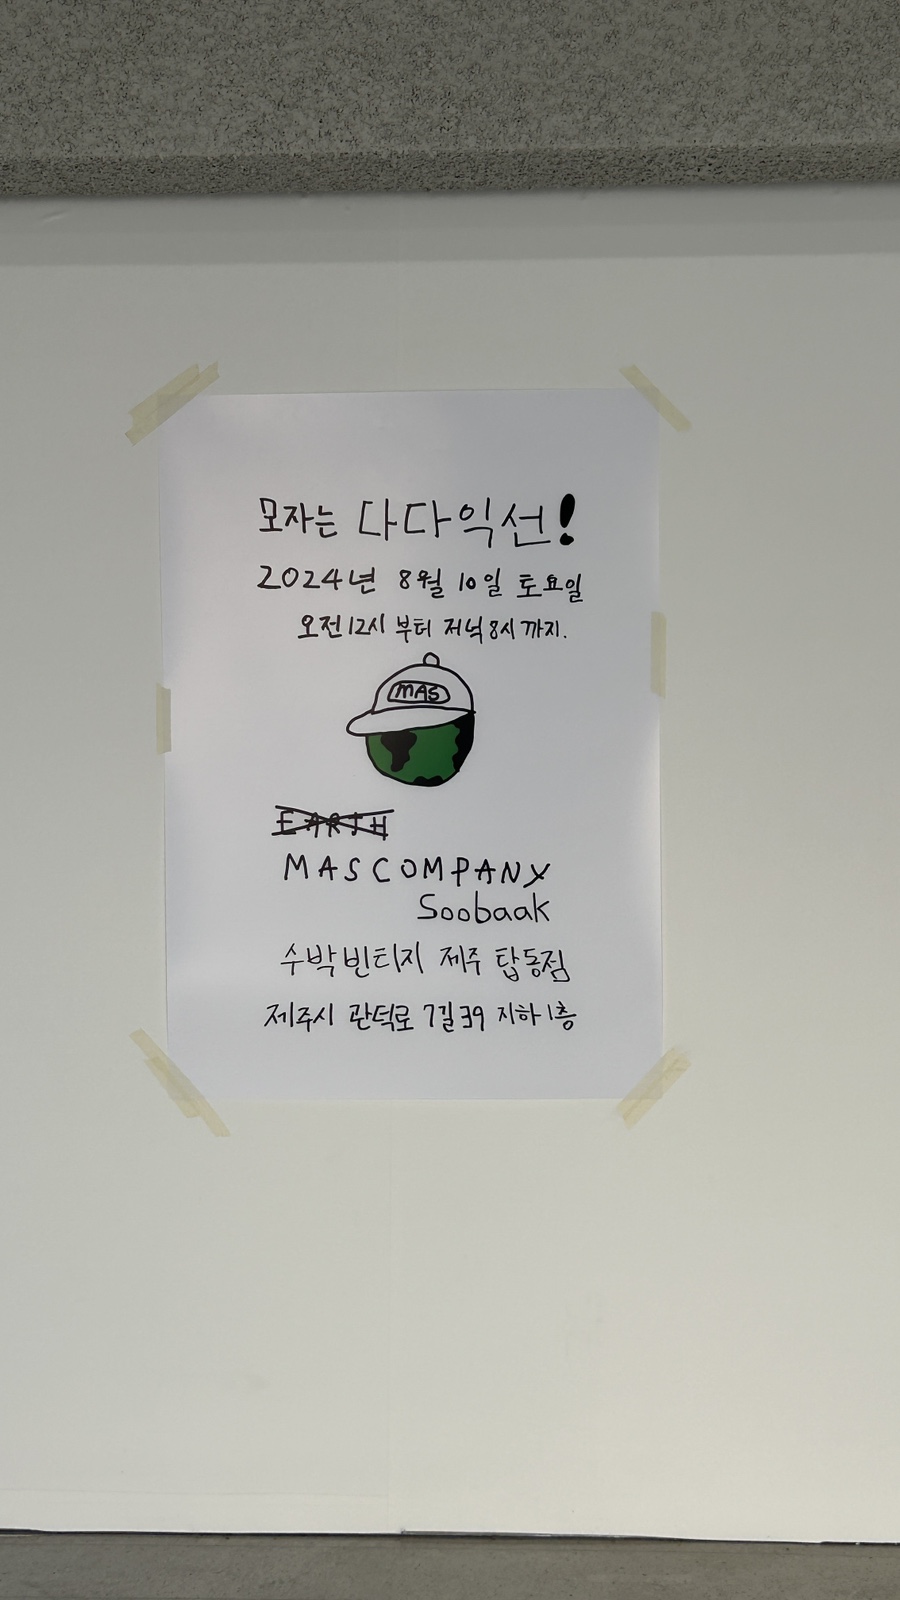 모자는 다다익선!
2024년 8월 10일 토요일
오전12시 부터 저녁8시 까지.
MAS
EARTH
MASCOMPANY
Soobaak
수박빈티지 제주 탑동점
제주시 관덕로 7길39 지하1층